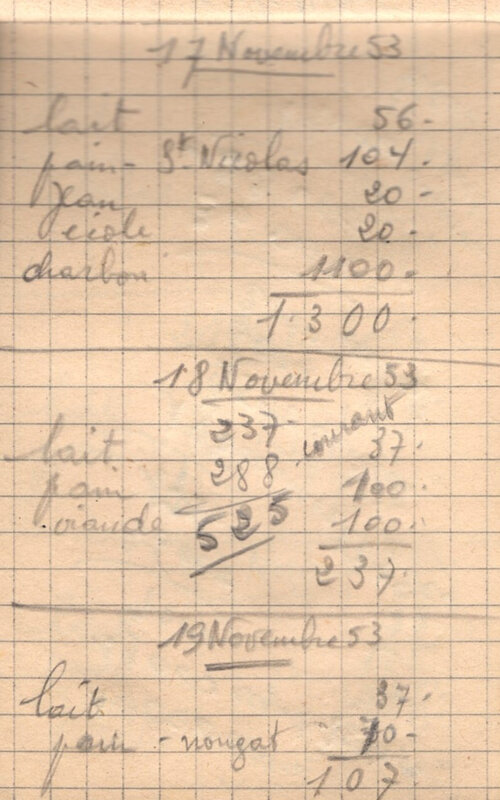 17 Novembre 53
lait 56-
pain - St Nicolas 104.
Jean 20-
école 20.
charbon 1100.
1.300.
18 Novembre 53
237
lait 288 courant 37.
pain 100.
viande 525 100.
237.
19 Novembre 53
lait 37-
pain - nougat 70-
107.